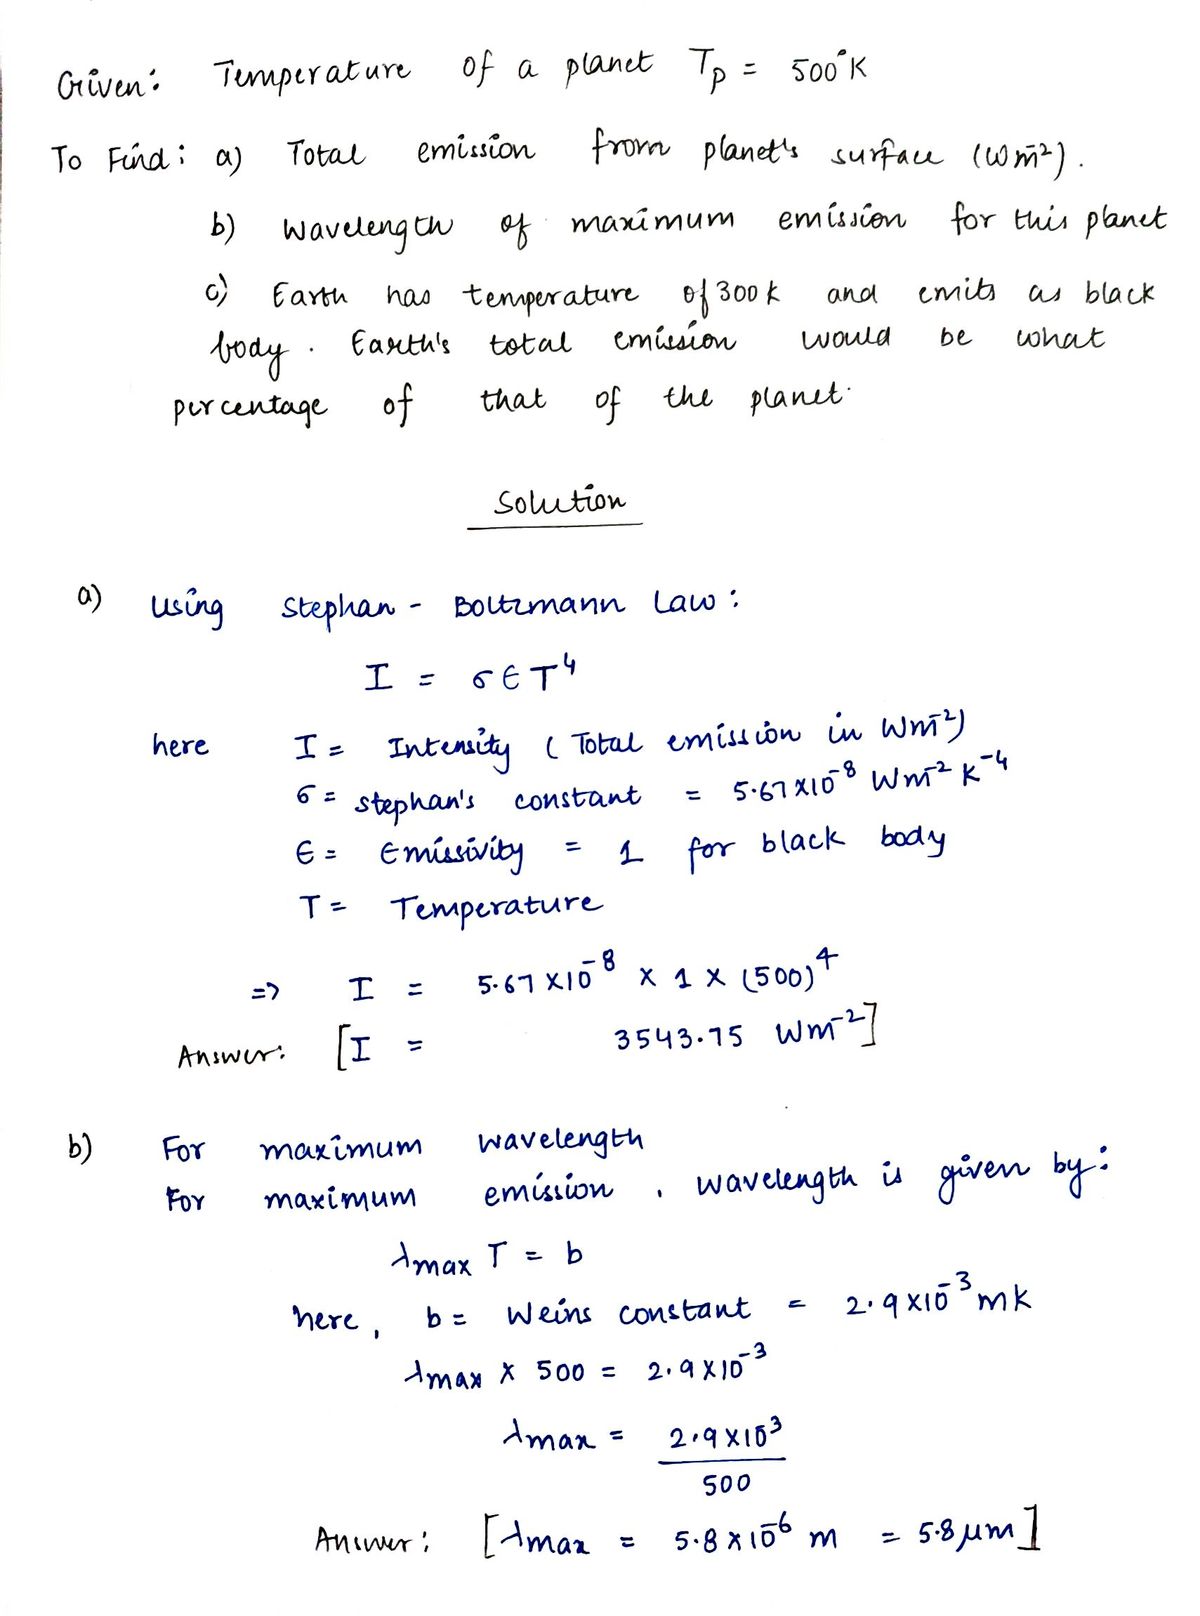 Given: Temperature of a planet Tp = 500°K
To Find: a) Total emission from planet's surface (Wm⁻²).
b) Wavelength of maximum emission for this planet
c) Earth has temperature of 300 K and emits as black
body. Earth's total emission would be what
percentage of that of the planet.
Solution
a) Using Stephan - Boltzmann Law:
I = σ ∈ T⁴
here I = Intensity (Total emission in Wm⁻²)
σ = Stephan's constant = 5.67 × 10⁻⁸ Wm⁻² K⁻⁴
∈ = Emissivity = 1 for black body
T = Temperature
=> I = 5.67 × 10⁻⁸ × 1 × (500)⁴
Answer: [I = 3543.75 Wm⁻²]
b) For maximum wavelength
For maximum emission, wavelength is given by:
λmax T = b
here, b = Weins constant = 2.9 × 10⁻³ mK
λmax × 500 = 2.9 × 10⁻³
λmax = 2.9 × 10⁻³
500
Answer: [λmax = 5.8 × 10⁻⁶ m = 5.8 μm]